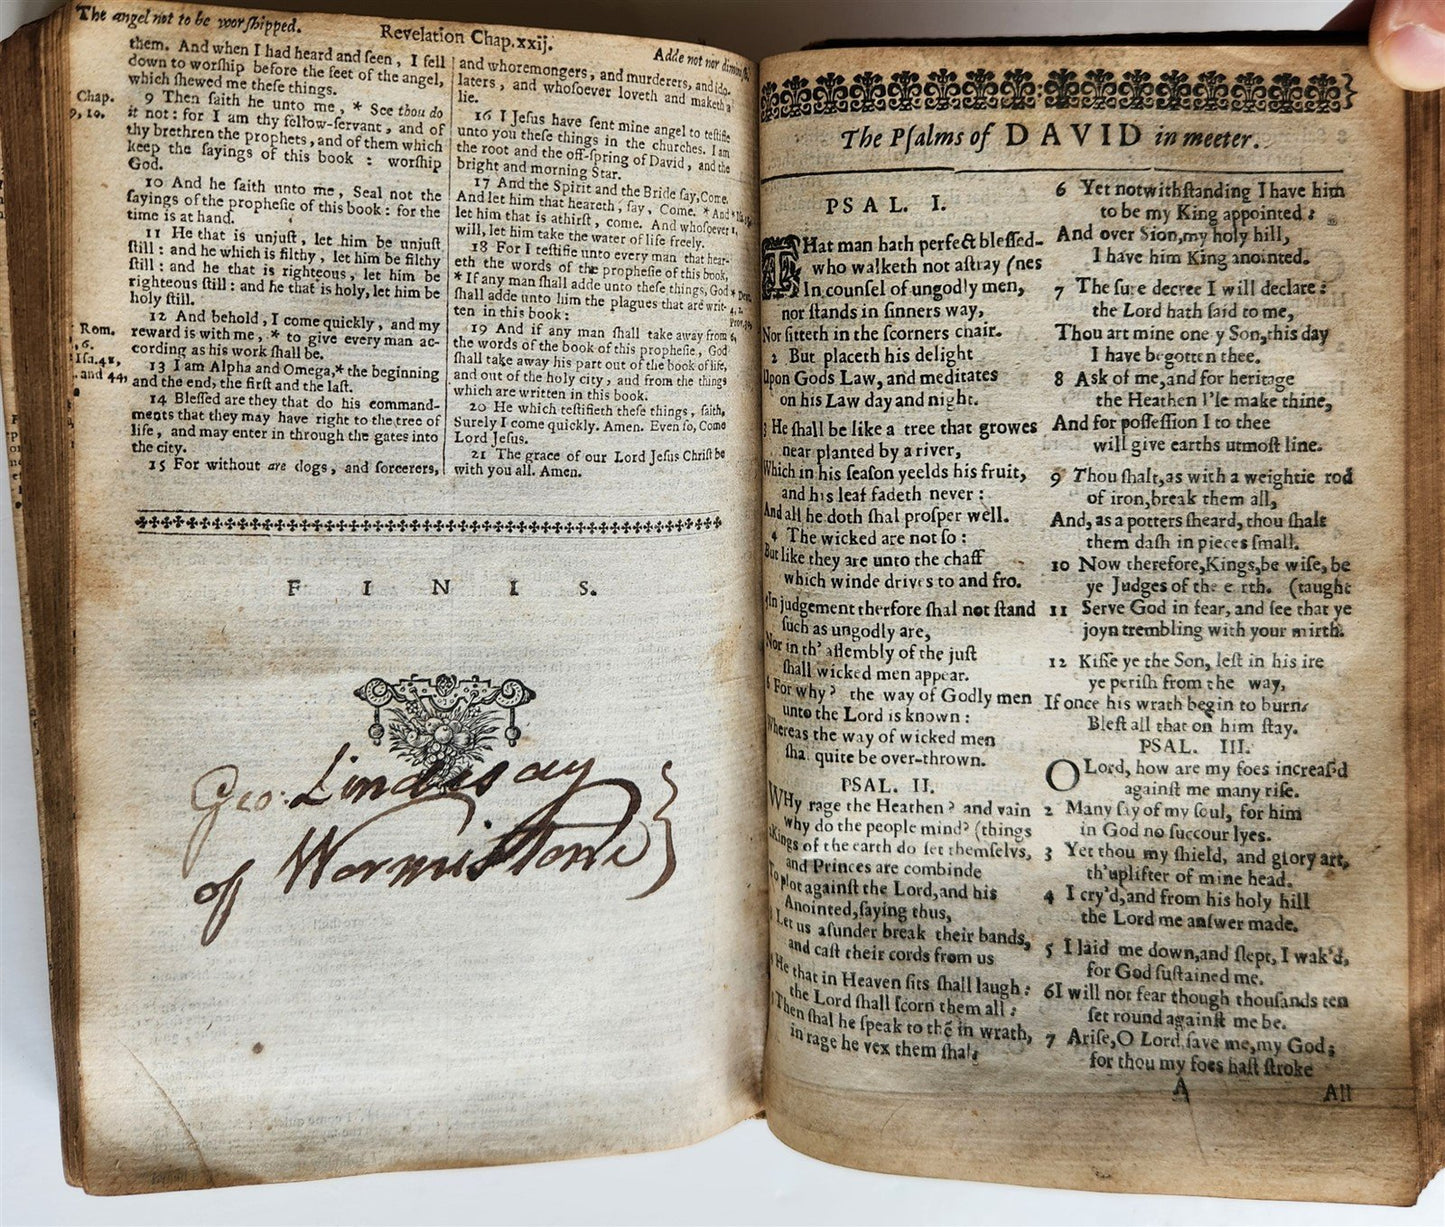 The angel not to be worſhipped.
Revelation Chap.xxij.
Adde not nor
them. And when I had heard and ſeen, I fell
down to worſhip before the feet of the angel,
which ſhewed me theſe things.
Chap.
9, 10.
9 Then ſaith he unto me, * See thou do
it not: for I am thy fellow-ſervant, and of
thy brethren the prophets, and of them which
keep the ſayings of this book : worſhip
God.
10 And he ſaith unto me, Seal not the
ſayings of the propheſie of this book: for the
time is at hand.
11 He that is unjuſt, let him be unjuſt
ſtill: and he which is filthy, let him be filthy
ſtill: and he that is righteous, let him be
righteous ſtill: and he that is holy, let him be
holy ſtill.
12 And behold, I come quickly, and my
reward is with me, * to give every man ac-
cording as his work ſhall be.
Rom.
.6.
Iſa.41,
and 44,
13 I am Alpha and Omega,* the beginning
and the end, the firſt and the laſt.
14 Bleſſed are they that do his command-
ments that they may have right to the tree of
life, and may enter in through the gates into
the city.
15 For without are dogs, and ſorcerers,
and whoremongers, and murderers, and ido-
laters, and whoſoever loveth and maketh a
lie.
16 I Jeſus have ſent mine angel to teſtifie
unto you theſe things in the churches. I am
the root and the off-ſpring of David, and the
bright and morning Star.
17 And the Spirit and the Bride ſay, Come.
And let him that heareth, ſay, Come. * And
let him that is athirſt, come. And whoſoever
will, let him take the water of life freely.
18 For I teſtifie unto every man that hear-
eth the words of the propheſie of this book,
* If any man ſhall adde unto theſe things, God
ſhall adde unto him the plagues that are writ-
ten in this book:
19 And if any man ſhall take away from
the words of the book of this propheſie, God
ſhall take away his part out of the book of life,
and out of the holy city, and from the things
which are written in this book.
20 He which teſtifieth theſe things, ſaith,
Surely I come quickly. Amen. Even ſo, Come
Lord Jeſus.
21 The grace of our Lord Jeſus Chriſt be
with you all. Amen.
FINIS.
Geo: Lindesay
of Wormistone
The Pſalms of DAVID in meeter.
PSAL. I.
THat man hath perfect bleſſed-
who walketh not aſtray (nes
In counſel of ungodly men,
nor ſtands in ſinners way,
Nor ſitteth in the ſcorners chair.
2 But placeth his delight
Upon Gods Law, and meditates
on his Law day and night.
3 He ſhall be like a tree that growes
near planted by a river,
Which in his ſeaſon yeelds his fruit,
and his leaf fadeth never :
And all he doth ſhal proſper well.
4 The wicked are not ſo :
But like they are unto the chaff
which winde drives to and fro.
5 In judgement therfore ſhal not ſtand
ſuch as ungodly are,
Nor in th' aſſembly of the juſt
ſhall wicked men appear.
6 For why? the way of Godly men
unto the Lord is known :
Whereas the way of wicked men
ſhal quite be over-thrown.
PSAL. II.
WHy rage the Heathen? and vain
why do the people mind? (things
2 Kings of the earth do ſet themſelvs,
and Princes are combinde
To plot againſt the Lord, and his
Anointed, ſaying thus,
3 Let us aſunder break their bands,
and caſt their cords from us
4 He that in Heaven ſits ſhall laugh:
the Lord ſhall ſcorn them all :
5 Then ſhal he ſpeak to thē in wrath,
in rage he vex them ſhal;
6 Yet notwithſtanding I have him
to be my King appointed :
And over Sion, my holy hill,
I have him King anointed.
7 The ſure decree I will declare :
the Lord hath ſaid to me,
Thou art mine onely Son, this day
I have begotten thee.
8 Ask of me, and for heritage
the Heathen I'le make thine,
And for poſſeſſion I to thee
will give earths utmoſt line.
9 Thou ſhalt, as with a weightie rod
of iron, break them all,
And, as a potters ſheard, thou ſhalt
them daſh in pieces ſmall.
10 Now therefore, Kings, be wiſe, be
ye Judges of the earth. (taught
11 Serve God in fear, and ſee that ye
joyn trembling with your mirth.
12 Kiſſe ye the Son, leſt in his ire
ye periſh from the way,
If once his wrath begin to burn:
Bleſt all that on him ſtay.
PSAL. III.
O Lord, how are my foes increaſ'd
againſt me many riſe.
2 Many ſay of my ſoul, for him
in God no ſuccour lyes.
3 Yet thou my ſhield, and glory art,
th'uplifter of mine head.
4 I cry'd, and from his holy hill
the Lord me anſwer made.
5 I laid me down, and ſlept, I wak'd,
for God ſuſtained me.
6 I will not fear though thouſands ten
ſet round againſt me be.
7 Ariſe, O Lord, ſave me, my God;
for thou my foes haſt ſtroke
A
All